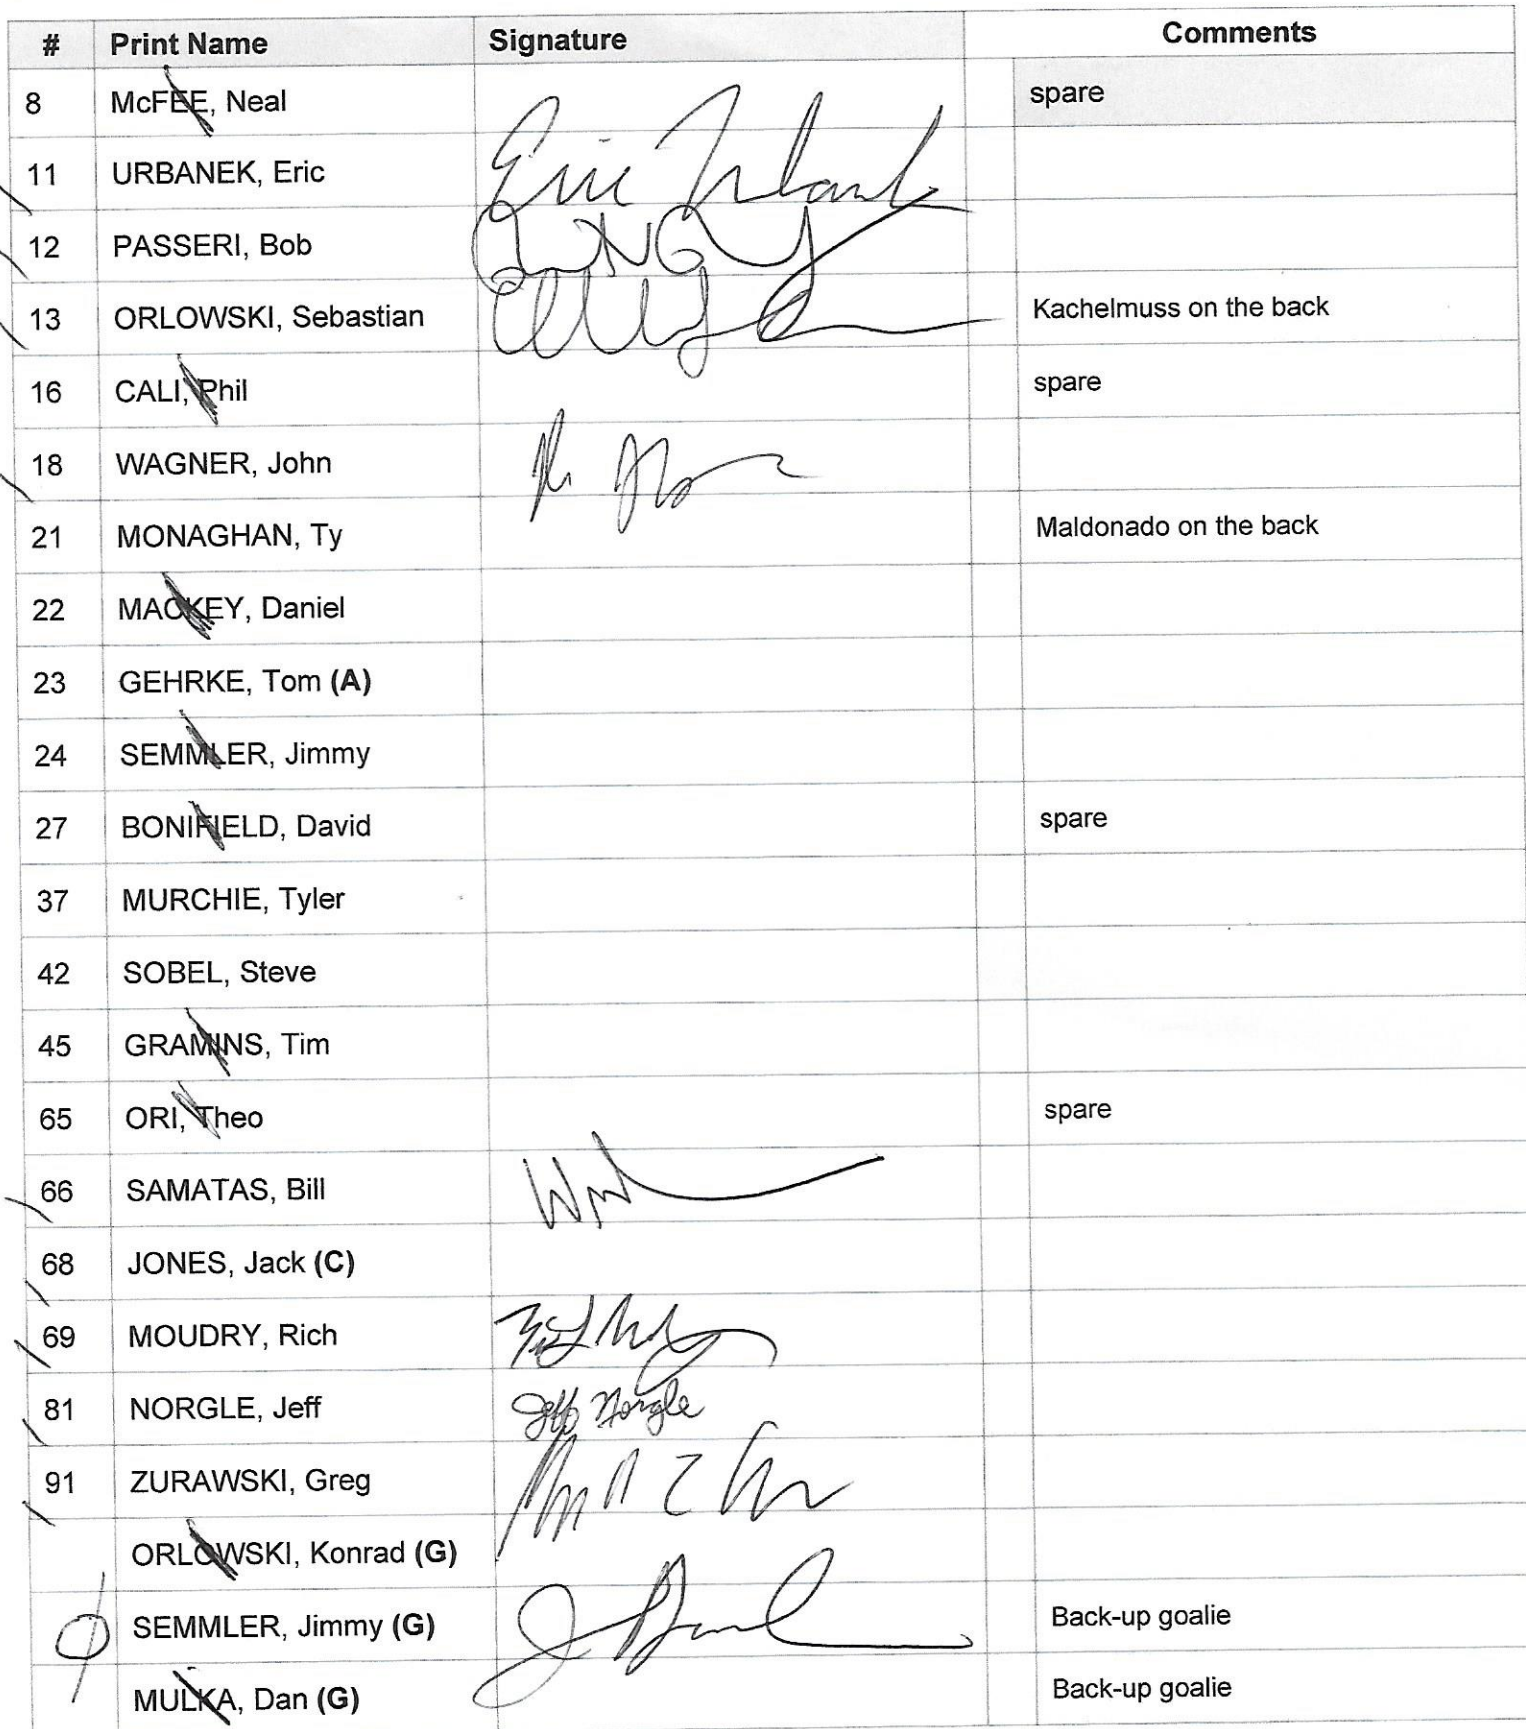 # Print Name Signature Comments
8 McFEE, Neal spare
11 URBANEK, Eric Eric Urbanek
12 PASSERI, Bob
13 ORLOWSKI, Sebastian Kachelmuss on the back
16 CALI, Phil spare
18 WAGNER, John
21 MONAGHAN, Ty Maldonado on the back
22 MACKEY, Daniel
23 GEHRKE, Tom (A)
24 SEMMLER, Jimmy
27 BONIFIELD, David spare
37 MURCHIE, Tyler
42 SOBEL, Steve
45 GRAMINS, Tim
65 ORI, Theo spare
66 SAMATAS, Bill
68 JONES, Jack (C)
69 MOUDRY, Rich
81 NORGLE, Jeff Jeff Norgle
91 ZURAWSKI, Greg
ORLOWSKI, Konrad (G)
SEMMLER, Jimmy (G) Back-up goalie
MULKA, Dan (G) Back-up goalie